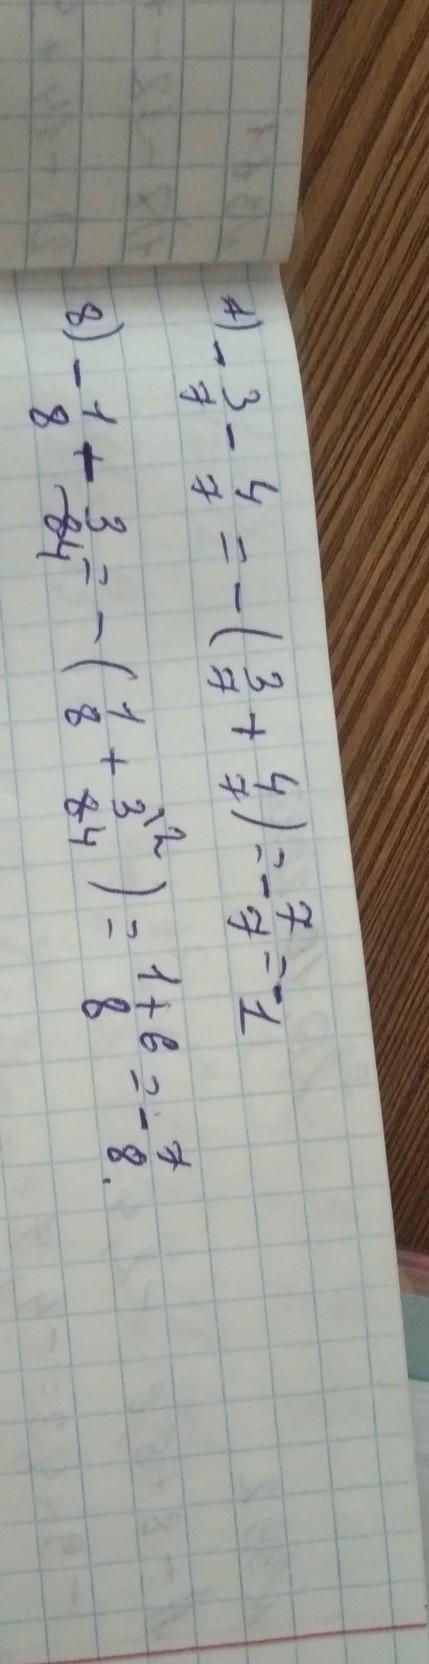 1) - 3/7 - 4/7 = - ( 3/7 + 4/7 ) = - 7/7 = -1
8) - 1/8 - 3/4 = - ( 1/8 + 3/4 \2 ) = 1+6/8 = - 7/8.